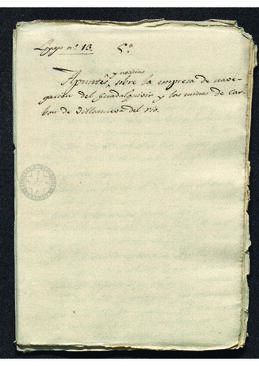 Legajo nº 13. 5º
y copias
Apuntes sobre la empresa de nave-
gacion del Guadalquivir y las minas de car-
bon de Villanueva del rio.